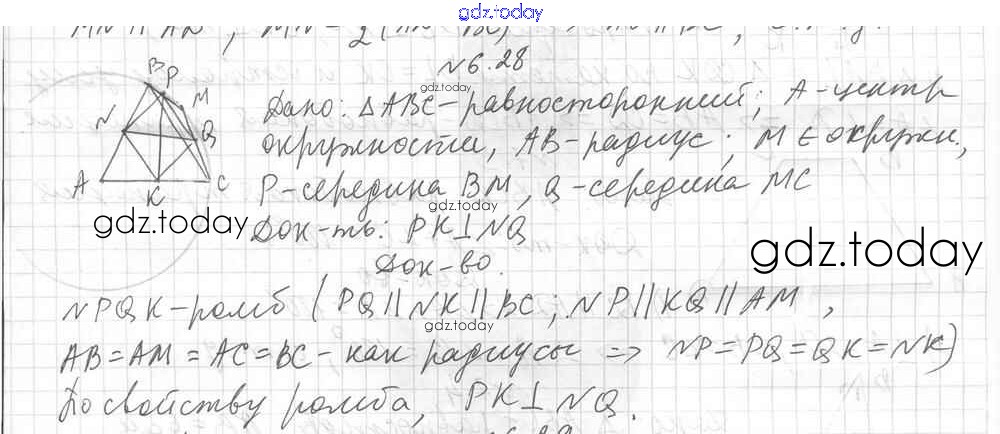 gdz.today
№6.28
B
P
M
N
Q
A
K
C
Дано: △ABC - равносторонний; A - центр
gdz.today
окружности, AB - радиус; M ∈ окружн.,
P - середина BM, Q - середина MC
gdz.today
gdz.today
Док-ть: PK⊥NQ
gdz.today
Док-во.
NPQK - ромб (PQ || NK || BC; NP || KQ || AM,
gdz.today
AB = AM = AC = BC - как радиусы => NP = PQ = QK = NK)
По свойству ромба, PK⊥NQ.
gdz.today